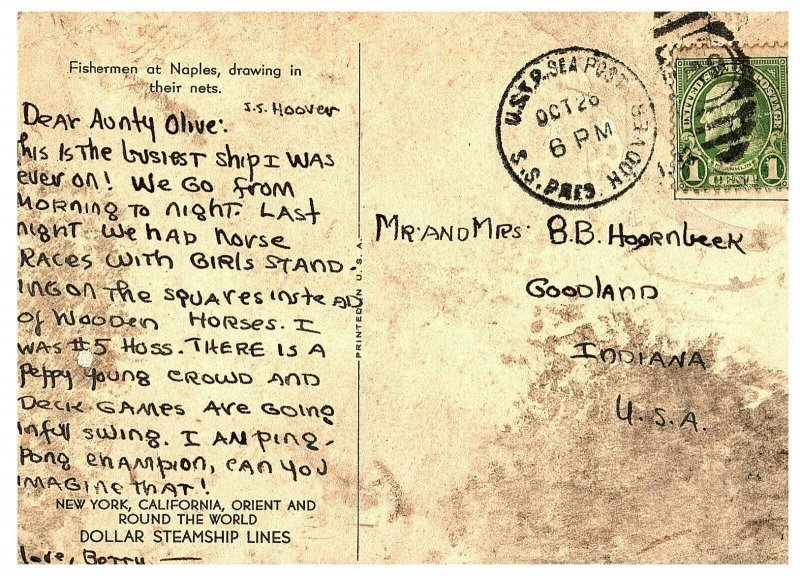 Fishermen at Naples, drawing in
their nets.
S.S. Hoover
Dear Aunty Olive:
his is the busiest ship I was
ever on! We go from
morning to night. Last
night we had horse
races with girls stand-
ing on the squares instead
of wooden horses. I
was #5 Hoss. There is a
peppy young crowd and
deck games are going
in full swing. I am ping-
pong champion, can you
imagine that!
NEW YORK, CALIFORNIA, ORIENT AND
ROUND THE WORLD
DOLLAR STEAMSHIP LINES
love, Betty
PRINTED IN U.S.A.
U.S.T.P. SEA POST
OCT 26
6 PM
S.S. PRES HOOVER
1 1
Mr. and Mrs. B.B. Hoornbeek
Goodland
Indiana
U.S.A.